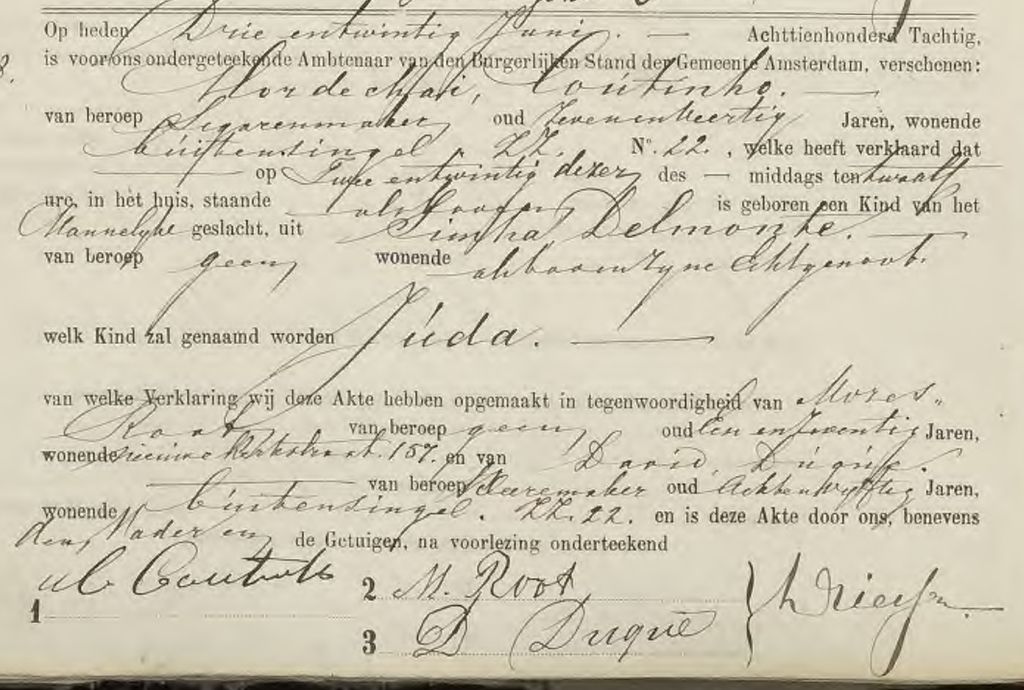 Op heden Drie entwintig Juni. — Achttienhonderd Tachtig,
is voor ons ondergeteekende Ambtenaar van den Burgerlijken Stand der Gemeente Amsterdam, verschenen:
Mordechai, Coutinho. —
van beroep Segarenmaker oud Zevenenveertig Jaren, wonende
buitensingel, ZZ. N°. 22. , welke heeft verklaard dat
— op Twee entwintig dezer des — middags ten twaalf
ure, in het huis, staande alsboven is geboren een Kind van het
Mannelyke geslacht, uit Simha, Delmonte. —
van beroep geen, wonende alsboven zyne Echtgenoot.
welk Kind zal genaamd worden Juda. —
van welke Verklaring wij deze Akte hebben opgemaakt in tegenwoordigheid van Mozes,
Root, van beroep geen, oud Een entwentig Jaren,
wonende nieuwe Kerkstraat. 157. en van David, Duque.
— van beroep Kleermaker oud Achtenvyftig Jaren,
wonende buitensingel. ZZ. 22. en is deze Akte door ons, benevens
den, Vader en, de Getuigen, na voorlezing onderteekend
1 M C Coutinho 2 M. Root
3 D Duque